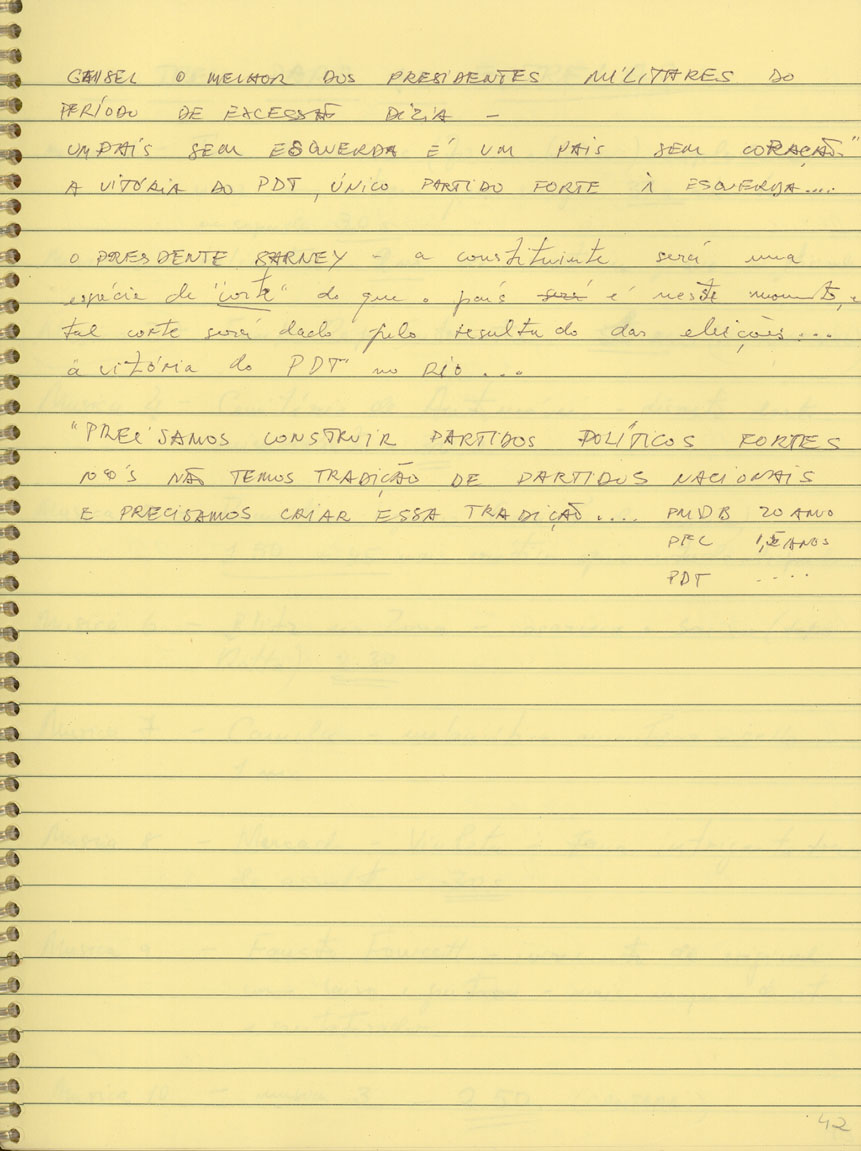 GEISEL O MELHOR DOS PRESIDENTES MILITARES DO
PERÍODO DE EXCESSÃO DIZIA –
UM PAÍS SEM ESQUERDA É UM PAÍS SEM CORAÇÃO"
A VITÓRIA DO PDT, ÚNICO PARTIDO FORTE À ESQUERDA....
O PRESIDENTE SARNEY – a constituinte será uma
espécie de "corte" do que o país será é neste momento, e
tal corte será dado pelo resultado das eleições...
a vitória do PDT no RIO ...
"PRECISAMOS CONSTRUIR PARTIDOS POLÍTICOS FORTES
NÓS NÃO TEMOS TRADIÇÃO DE PARTIDOS NACIONAIS
E PRECISAMOS CRIAR ESSA TRADIÇÃO.... PMDB 20 ANO
PFL ANOS
PDT ....
42